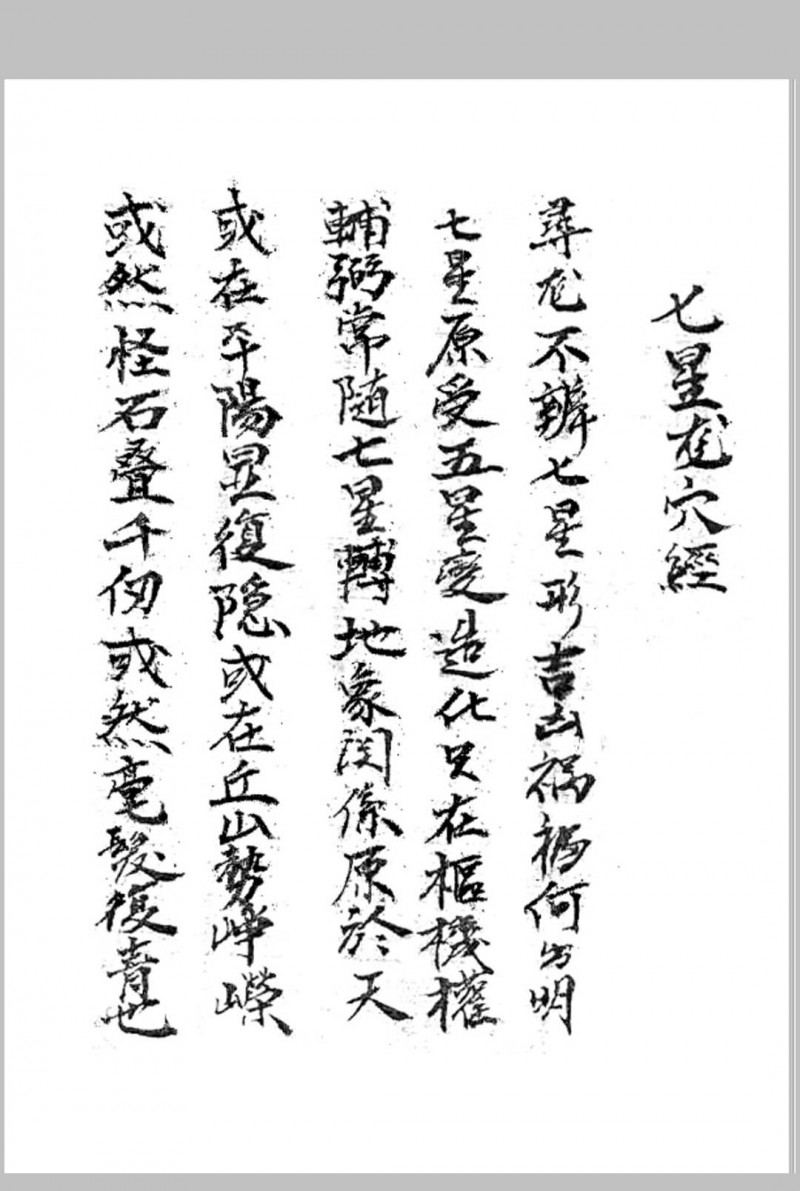 七星龙穴經
尋龙不辨七星形吉凶禍福何分明
七星原受五星变造化只在樞機權
輔弼常随七星轉地象関係原於天
或在平陽显復隐或在丘山勢峥嶸
或然怪石叠千仞或然毫髮復青也